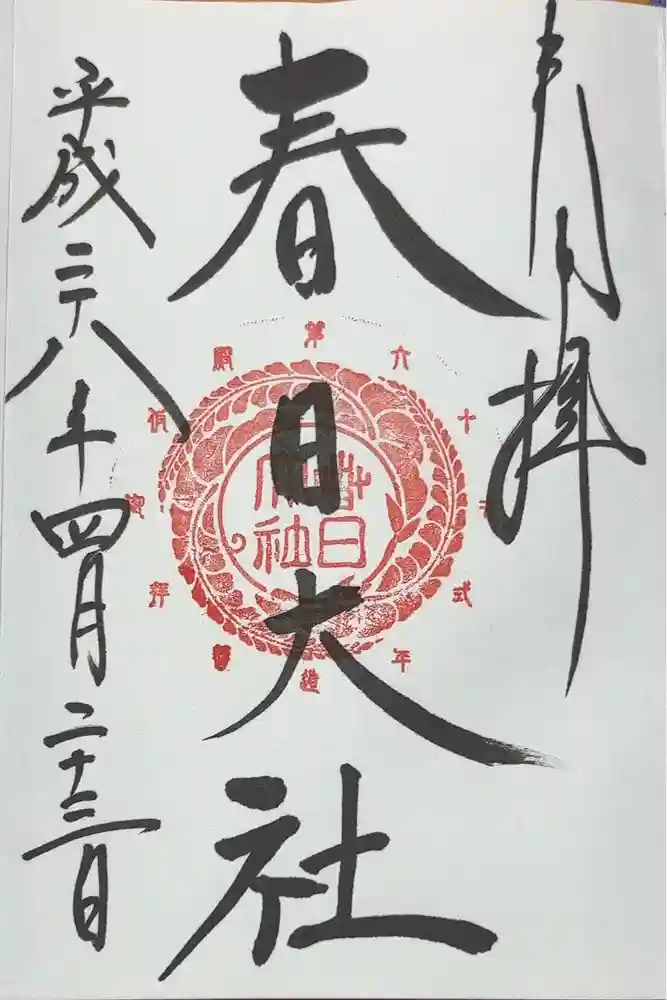 奉拝
春日大社
平成二十八年四月二十三日
春日
大社
第六十次式年造替